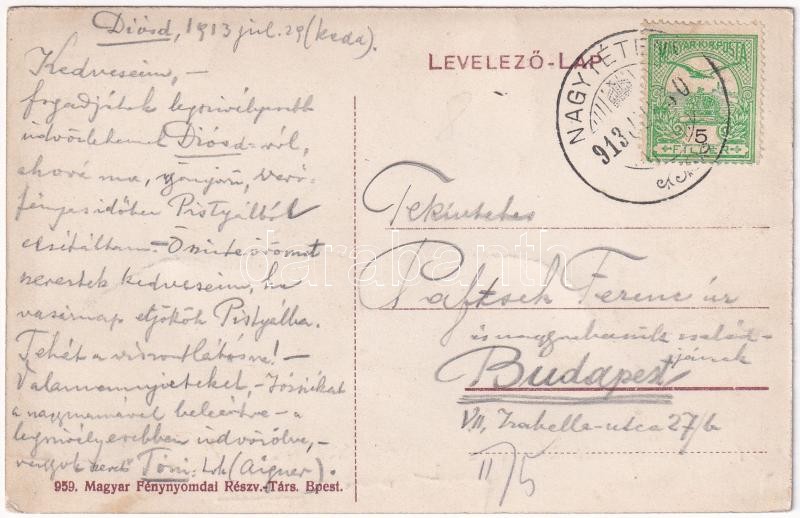 Diósd, 1913 júl. 29 (kedd).
Kedveseim, –
fogadjátok legszívélyesebb
üdvözletemet Diósd-ról,
ahová ma, gyönyörű, verő-
fényes időben Pistyáltól
elsétáltam. – Őszinte örömet
szereztek kedveseim, ha
vasárnap eljöttök Pistyálba.
Tehát a viszontlátásra! –
Valamennyieteket, – Józsikát
a nagymamával beleértve – a
legszívélyesebben üdvözölve, –
vagyok szerető Tóni: (Aigner).
959. Magyar Fénynyomdai Részv.-Társ. Bpest.
LEVELEZŐ-LAP
NAGYTÉTÉNY
913
MAGYAR KIR. POSTA
5
FILLÉR
Tekintetes
Paftsek Ferenc úr
és nagyrabecsült család-
jának
Budapest
VII, Izabella-utca 27/b
II/5
darabanth